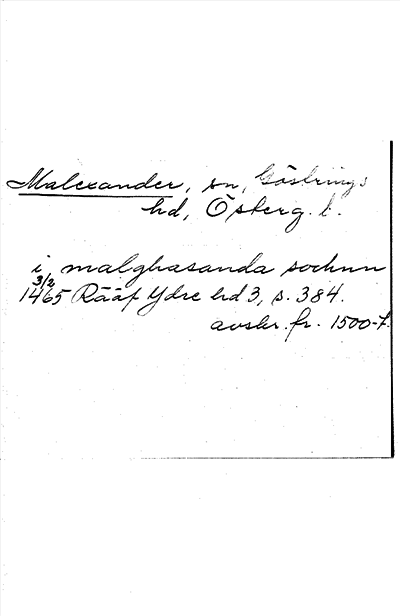 Malexander, sn, Göstrings
hd, Österg. l.
i malghasanda sochnn
3/2
1465 Rääf Ydre hd 3, s. 384.
avskr. fr. 1500-t.